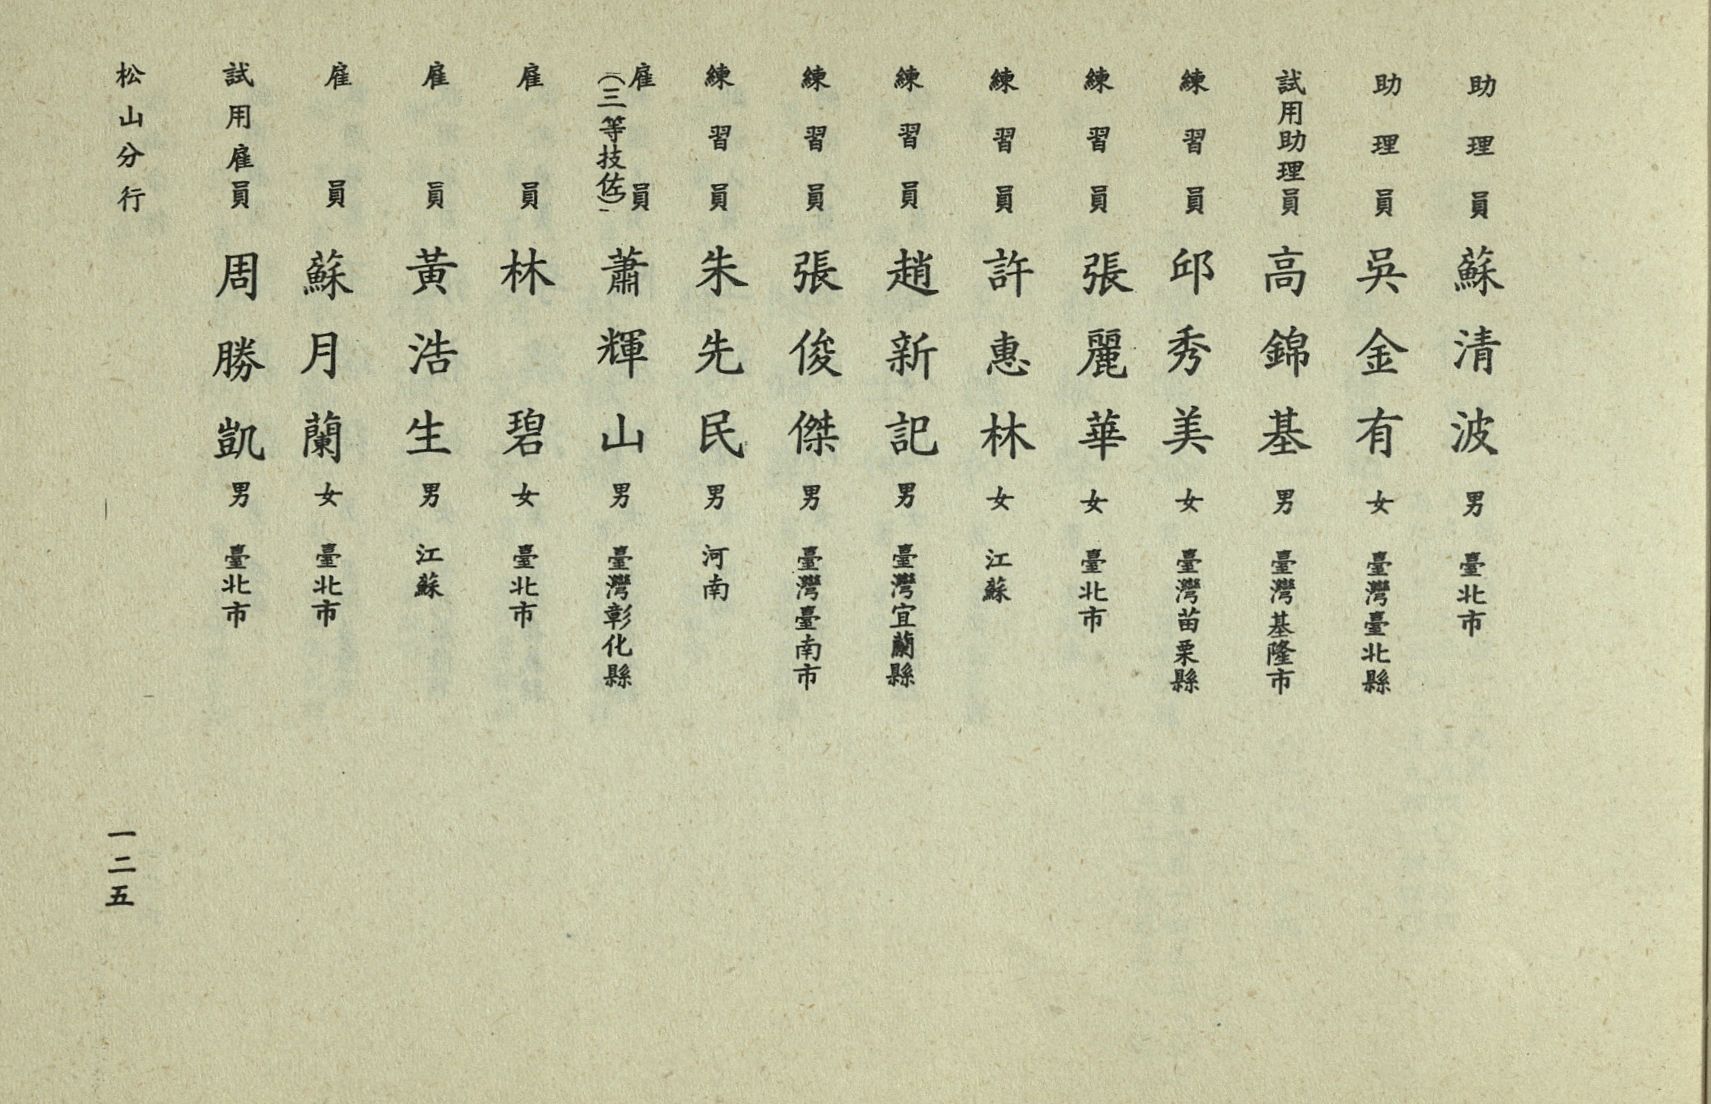 助理員 蘇清波 男 臺北市
助理員 吳金有 女 臺灣臺北縣
試用助理員 高錦基 男 臺灣基隆市
練習員 邱秀美 女 臺灣苗栗縣
練習員 張麗華 女 臺北市
練習員 許惠林 女 江蘇
練習員 趙新記 男 臺灣宜蘭縣
練習員 張俊傑 男 臺灣臺南市
練習員 朱先民 男 河南
雇員(三等技佐) 蕭輝山 男 臺灣彰化縣
雇員 林碧 女 臺北市
雇員 黃浩生 男 江蘇
雇員 蘇月蘭 女 臺北市
試用雇員 周勝凱 男 臺北市
松山分行
一二五